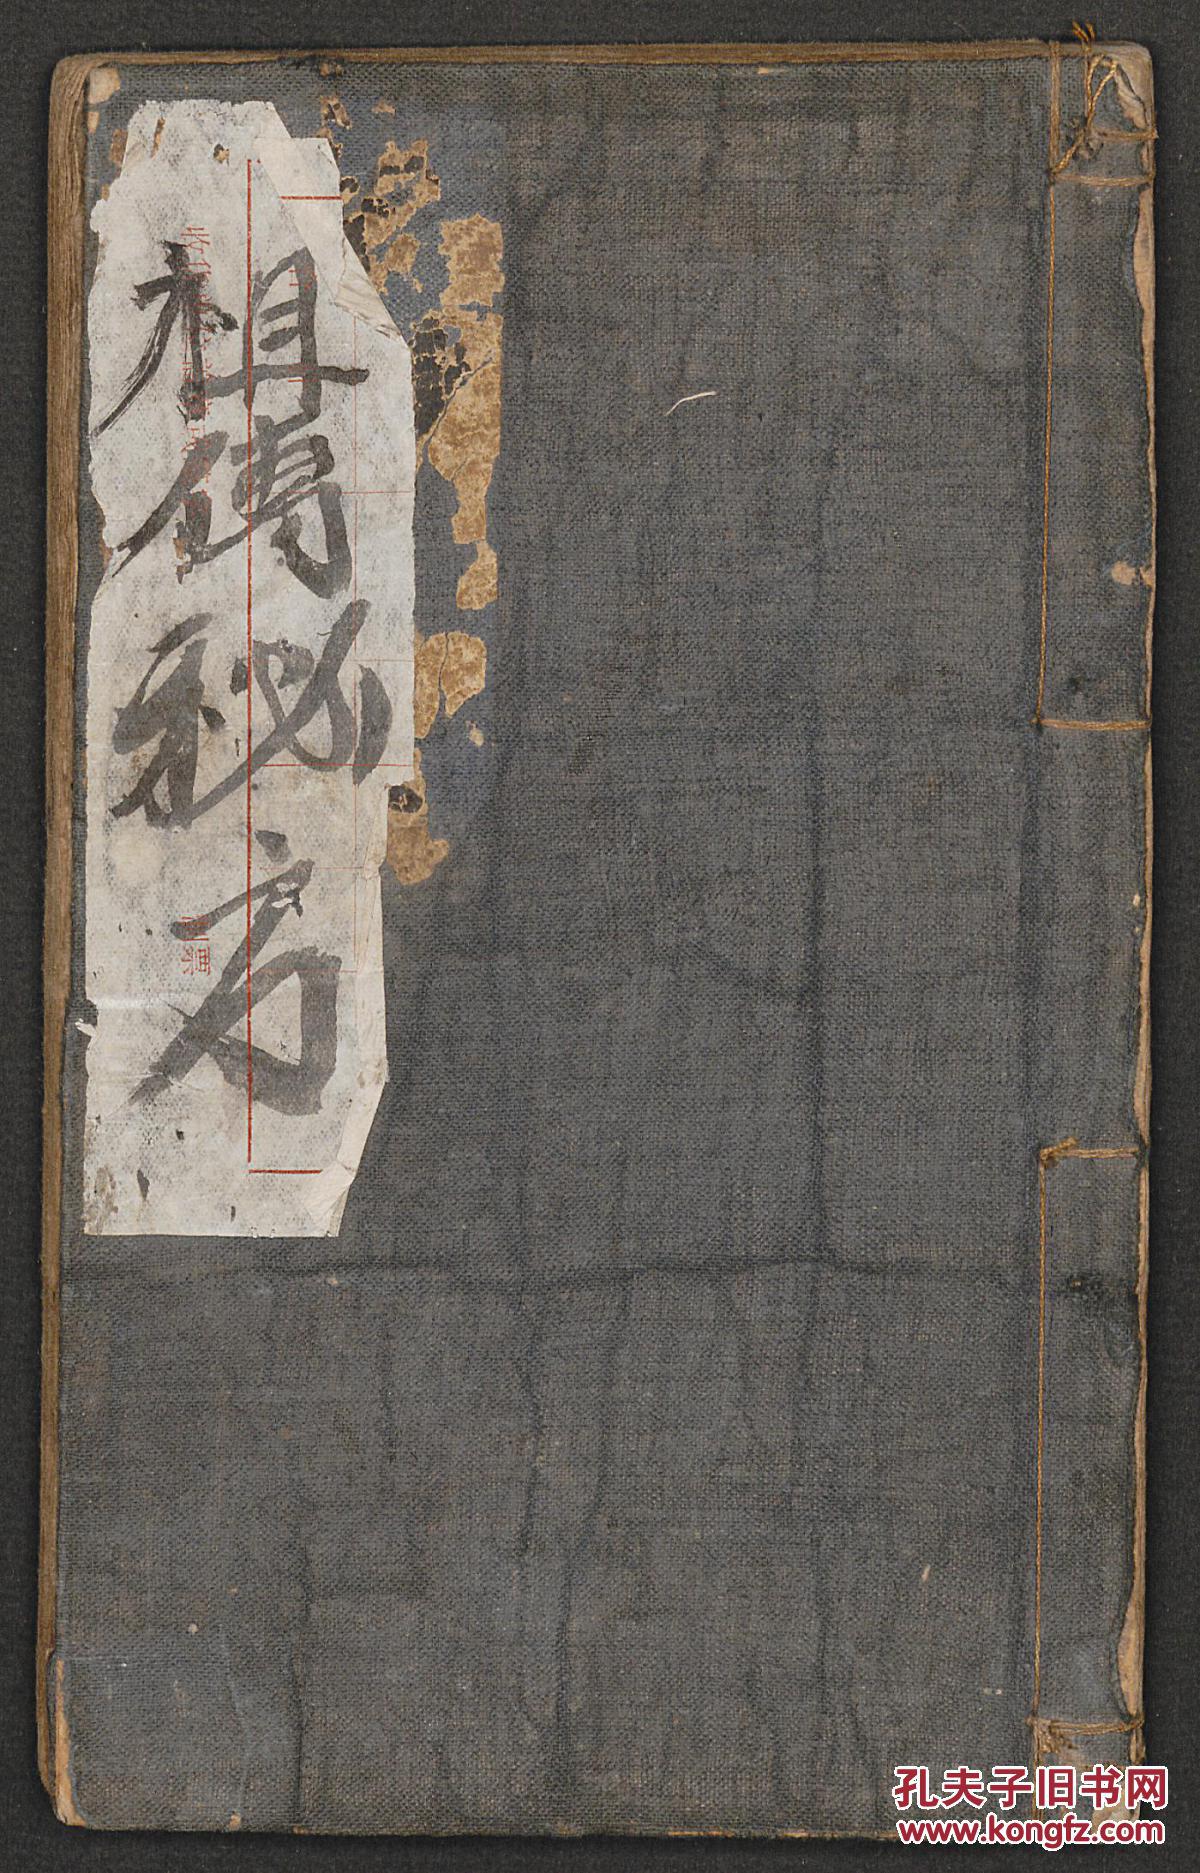 祖傳秘方
孔夫子旧书网
www.kongfz.com